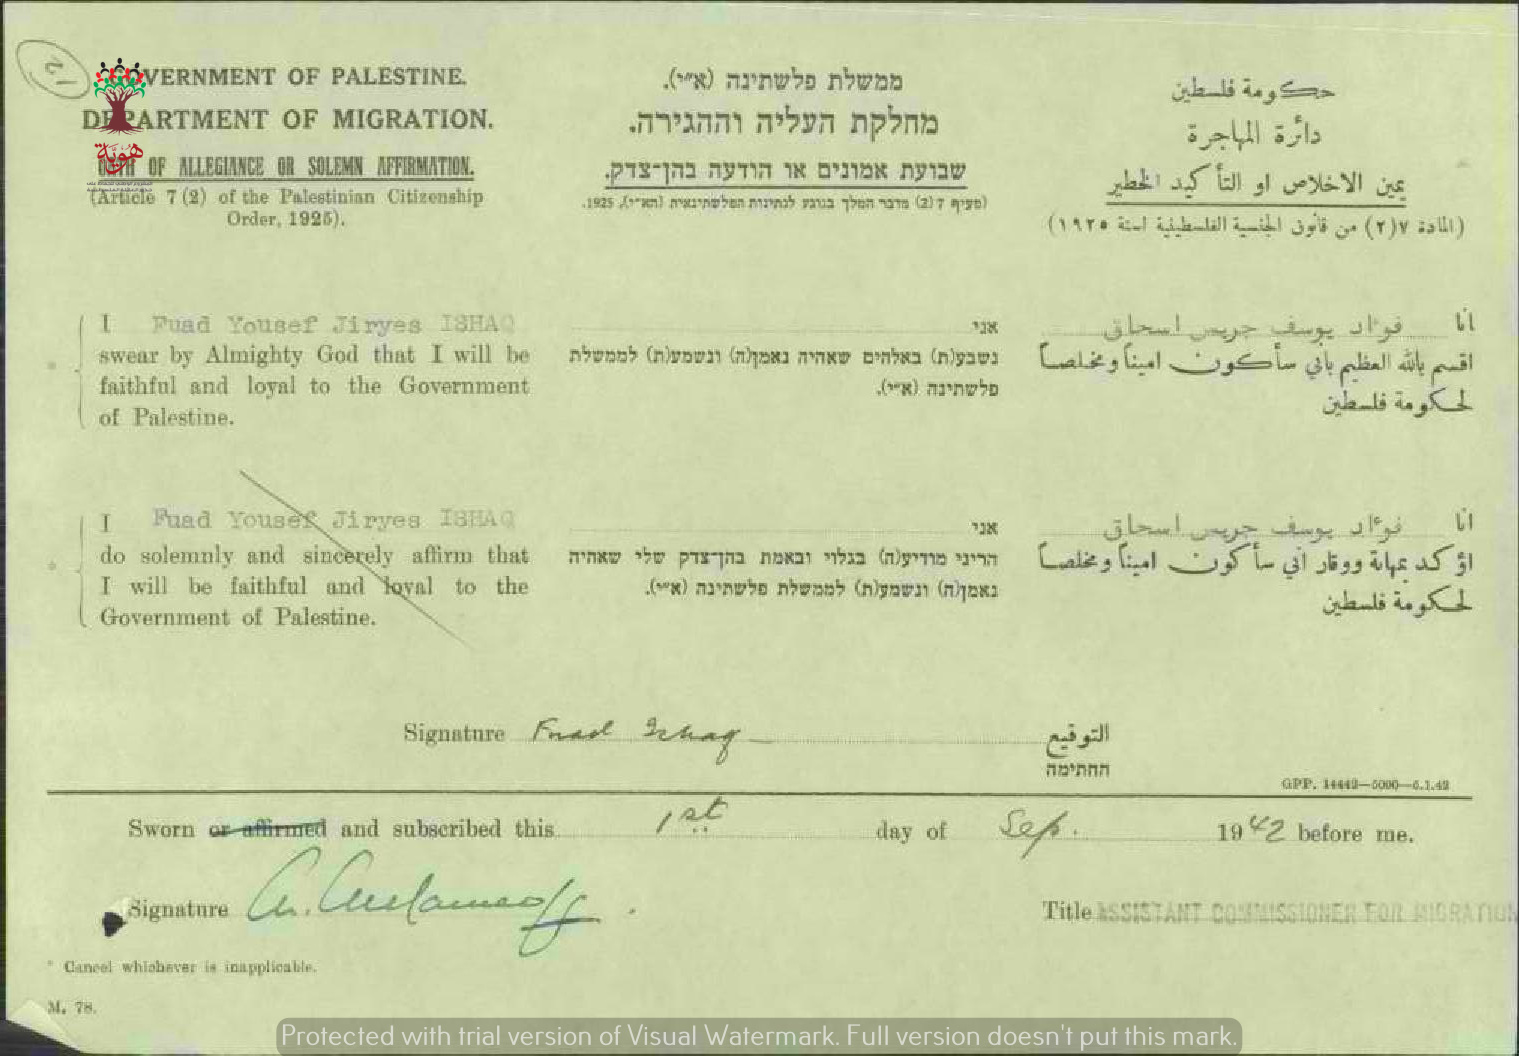 12
GOVERNMENT OF PALESTINE.
DEPARTMENT OF MIGRATION.
OATH OF ALLEGIANCE OR SOLEMN AFFIRMATION.
(Article 7 (2) of the Palestinian Citizenship
Order, 1925).
ממשלת פלשתינה (א״י).
מחלקת העליה וההגירה.
שבועת אמונים או הודעה בהן־צדק.
(סעיף 7 (2) מדבר המלך בנוגע לנתינות הפלשתינאית (הא״י), 1925.
حكومة فلسطين
دائرة المهاجرة
يمين الاخلاص او التأكيد الخطير
(المادة ٧(٢) من قانون الجنسية الفلسطينية لسنة ١٩٢٥)
هوية
I Fuad Yousef Jiryes ISHAQ
swear by Almighty God that I will be
faithful and loyal to the Government
of Palestine.
אני
נשבע(ת) באלהים שאהיה נאמן(ה) ונשמע(ת) לממשלת
פלשתינה (א״י).
انا فؤاد يوسف جريس اسحاق
اقسم بالله العظيم باني سأكون اميناً ومخلصاً
لحكومة فلسطين
* I Fuad Yousef Jiryes ISHAQ
do solemnly and sincerely affirm that
I will be faithful and loyal to the
Government of Palestine.
אני
הריני מודיע(ה) בגלוי ובאמת בהן־צדק שלי שאהיה
נאמן(ה) ונשמע(ת) לממשלת פלשתינה (א״י).
انا فؤاد يوسف جريس اسحاق
اؤكد بمهابة ووقار اني سأكون اميناً ومخلصاً
لحكومة فلسطين
Signature Fuad Ishaq التوقيع
החתימה
GPP. 14442—5000—6.1.42
Sworn or affirmed and subscribed this 1st day of Sep. 1942 before me.
Signature
Title ASSISTANT COMMISSIONER FOR MIGRATION
* Cancel whichever is inapplicable.
M. 78.
Protected with trial version of Visual Watermark. Full version doesn't put this mark.